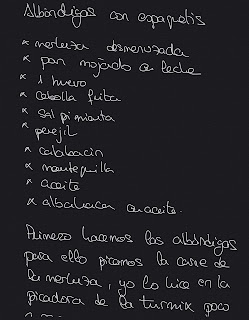 Albóndigas con espaguetis
* merluza desmenuzada
* pan mojado en leche
* 1 huevo
* cebolla frita
* sal pimienta
* perejil
* calabacín
* mantequilla
* aceite
* albahaca en aceite.
Primero hacemos las albóndigas
para ello picamos la carne de
la merluza, yo lo hice en la
picadora de la turmix poco